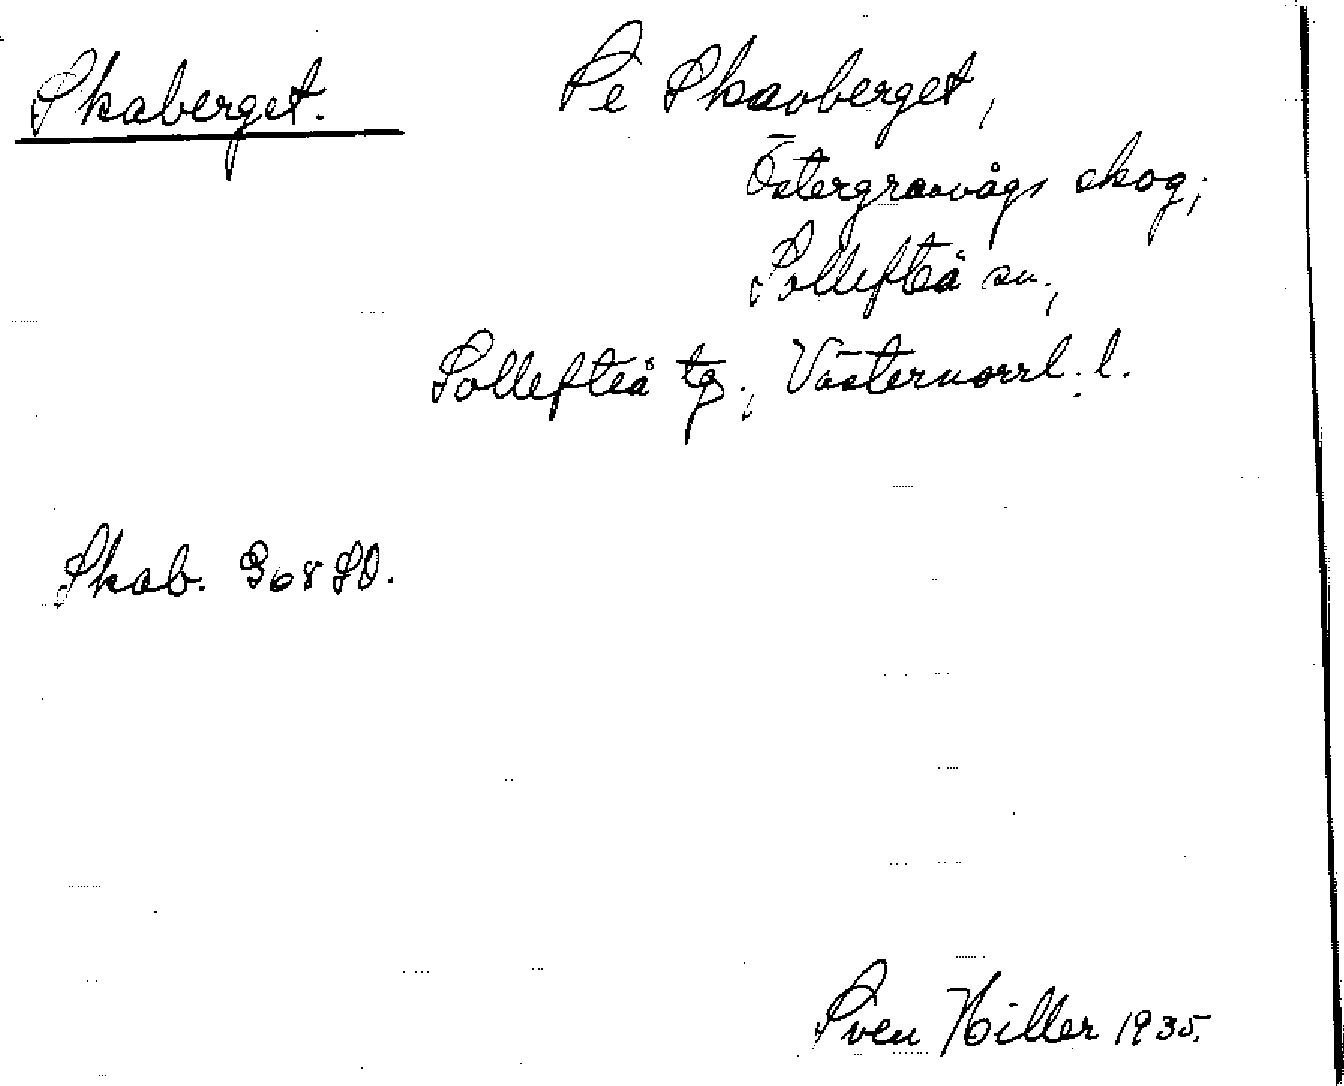 Skaberget.
Se Skavberget,
Östergranvågs skog,
Sollefteå sn.,
Sollefteå tg., Västernorrl. l.
Skab. 368 SO.
Sven Hiller 1935.